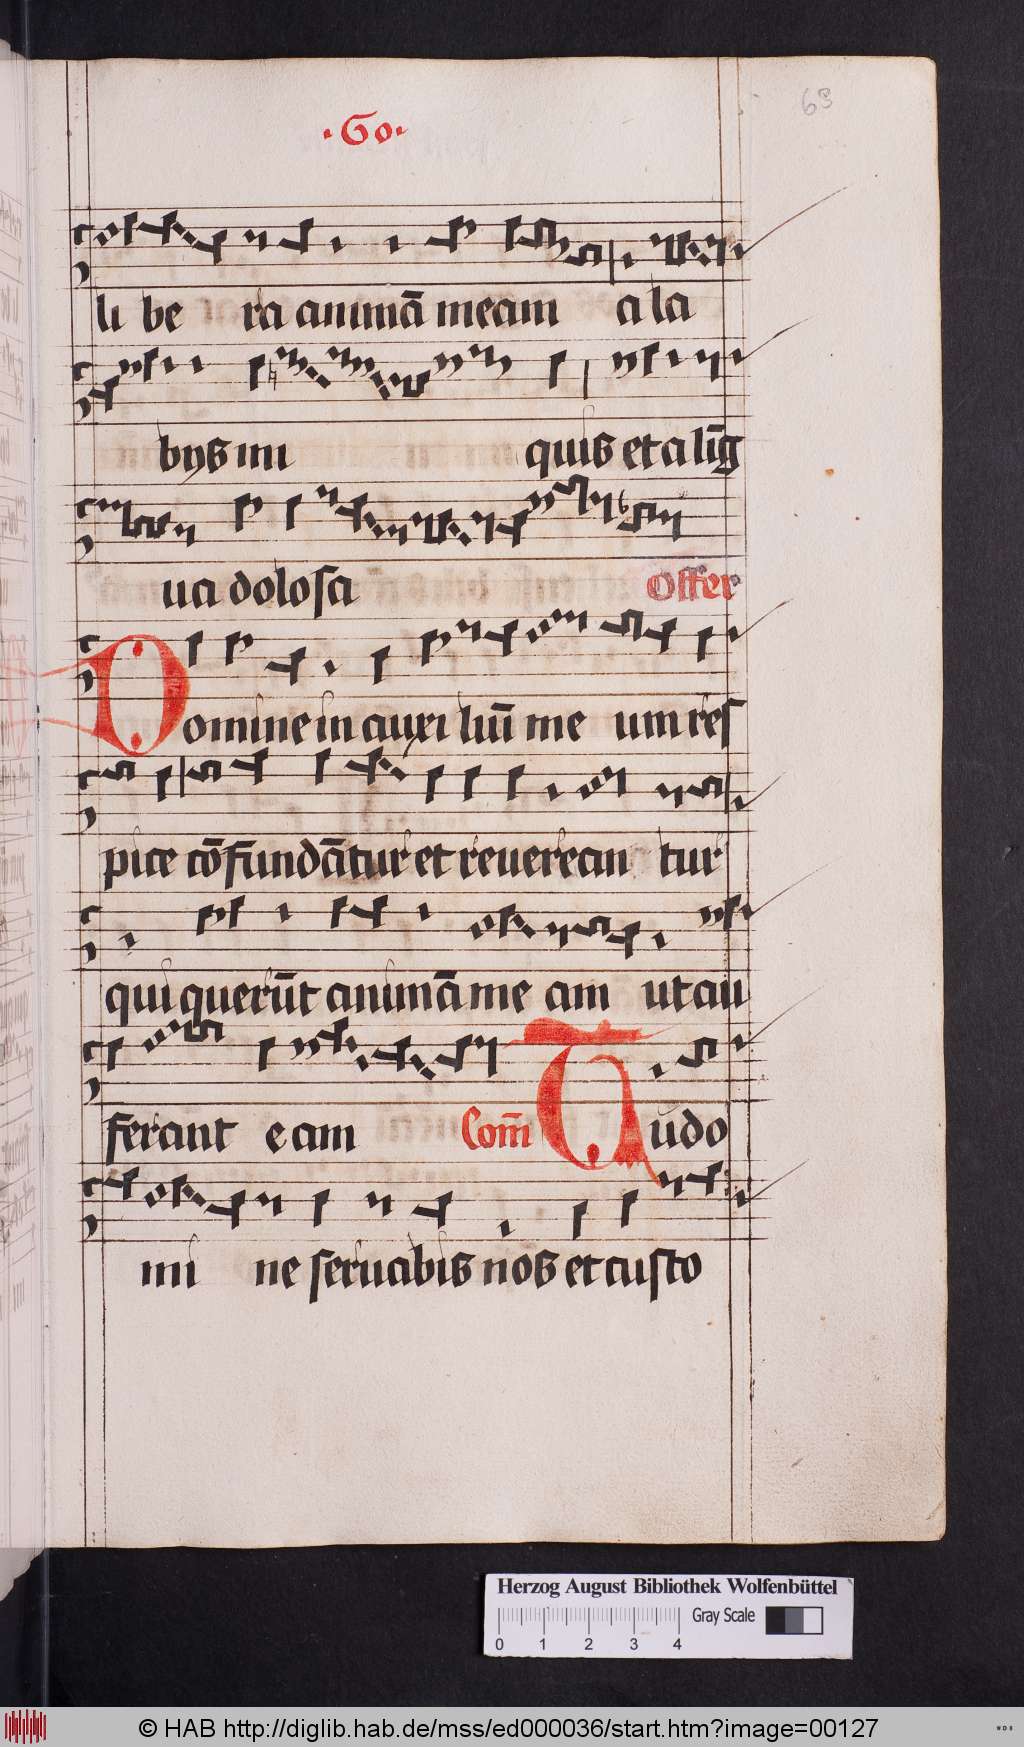 ·60·
63
li be ra animā meam a la
bys mi quis et a līg
ua dolosa Offer
Domine in auxi liū me um res
pice cōfundātur et reuerean tur
qui querūt animā me am ut au
ferant eam Com̄ Tu do
mi ne seruabis nos et custo
Herzog August Bibliothek Wolfenbüttel
0 1 2 3 4 Gray Scale
© HAB http://diglib.hab.de/mss/ed000036/start.htm?image=00127